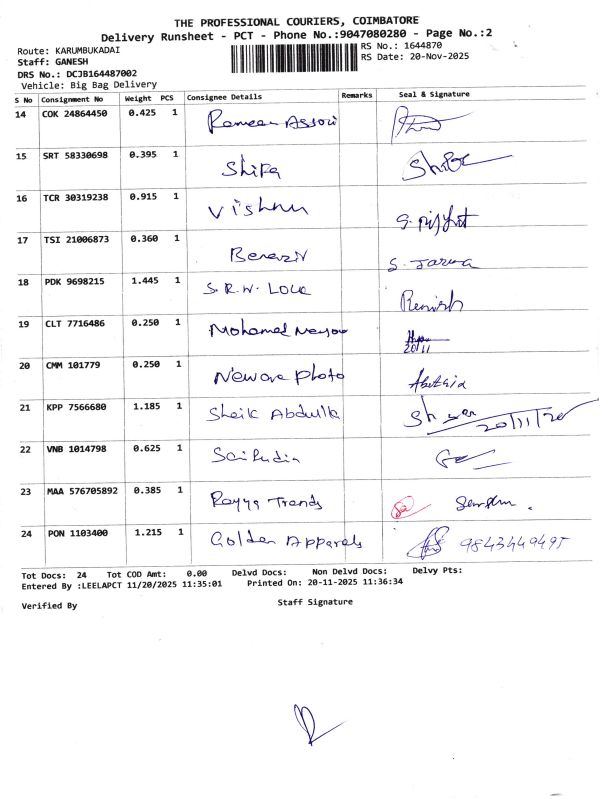 THE PROFESSIONAL COURIERS, COIMBATORE
Delivery Runsheet - PCT - Phone No.:9047080280 - Page No.:2
Route: KARUMBUKADAI RS No.: 1644870
Staff: GANESH RS Date: 20-Nov-2025
DRS No.: DCJB164487002
Vehicle: Big Bag Delivery
S No Consignment No Weight PCS Consignee Details Remarks Seal & Signature
14 COK 24864450 0.425 1
15 SRT 58330698 0.395 1 Shifa
16 TCR 30319238 0.915 1 Vishnu
17 TSI 21006873 0.360 1
18 PDK 9698215 1.445 1 S.R.W.
19 CLT 7716486 0.250 1 Mohamed 20/11
20 CMM 101779 0.250 1 Photo
21 KPP 7566680 1.185 1 Sheik Abdulla
22 VNB 1014798 0.625 1 Saifudin
23 MAA 576705892 0.385 1 Rayya Trends
24 PON 1103400 1.215 1 Golden Apparels 9843449495
Tot Docs: 24 Tot COD Amt: 0.00 Delvd Docs: Non Delvd Docs: Delvy Pts:
Entered By :LEELAPCT 11/20/2025 11:35:01 Printed On: 20-11-2025 11:36:34
Verified By Staff Signature